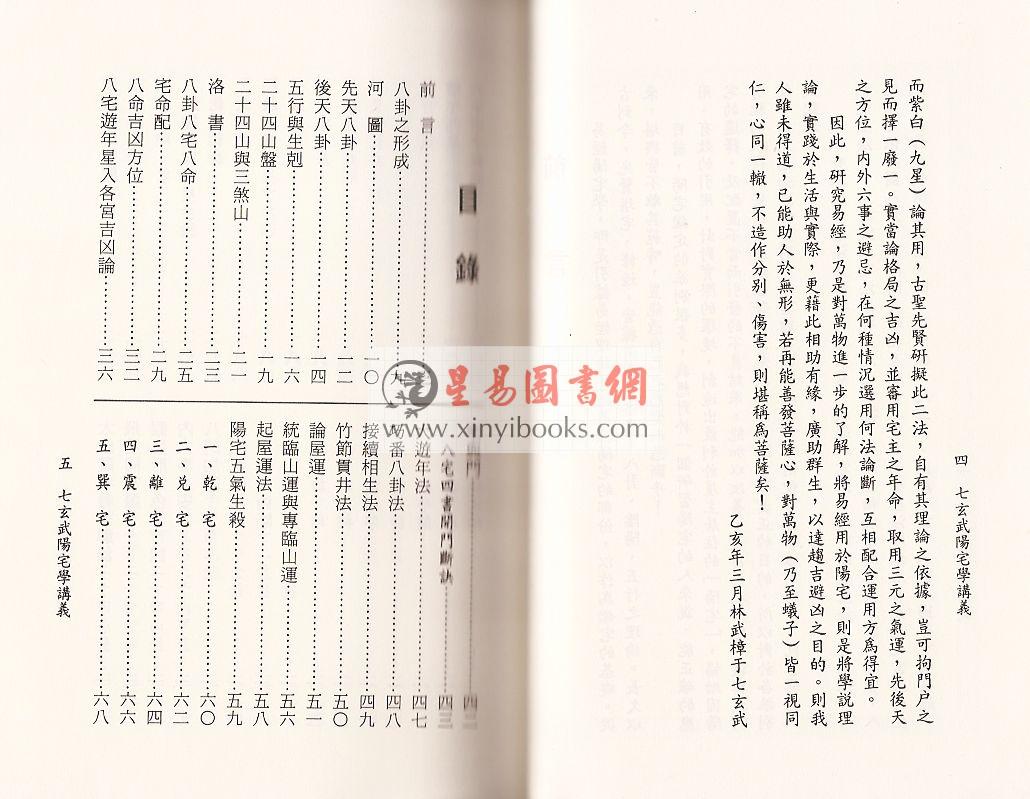 四　七玄武陽宅學講義
而紫白（九星）論其用，古聖先賢研擬此二法，自有其理論之依據，豈可拘門户之
見而擇一廢一。實當論格局之吉凶，並審用宅主之年命，取用三元之氣運，先後天
之方位，內外六事之避忌，在何種情況選用何法論斷，互相配合運用方爲得宜。
因此，研究易經，乃是對萬物進一步的了解，將易經用於陽宅，則是將學説理
論，實踐於生活與實際，更藉此相助有緣，廣助群生，以達趨吉避凶之目的。則我
人雖未得道，已能助人於無形，若再能善發菩薩心，對萬物（乃至蟻子）皆一視同
仁，心同一轍，不造作分別、傷害，則堪稱爲菩薩矣！
乙亥年三月林武樟于七玄武
目錄
前　言
八卦之形成……九
河　圖……一〇
先天八卦……一二
後天八卦……一四
五行與生剋……一六
二十四山盤……一九
二十四山與三煞山……二一
洛　書……二三
八卦八宅八命……二五
宅命配……二九
八命吉凶方位……三二
八宅遊年星入各宮吉凶論……三六
門……四二
八宅四書開門斷訣……四三
遊年法……四七
番八卦法……四八
接續相生法……四九
竹節貫井法……五〇
論屋運……五一
統臨山運與專臨山運……五六
起屋運法……五八
陽宅五氣生殺……五九
一、乾　宅……六〇
二、兑　宅……六二
三、離　宅……六四
四、震　宅……六六
五、巽　宅……六八
五　七玄武陽宅學講義
星易圖書網
www.xinyibooks.com